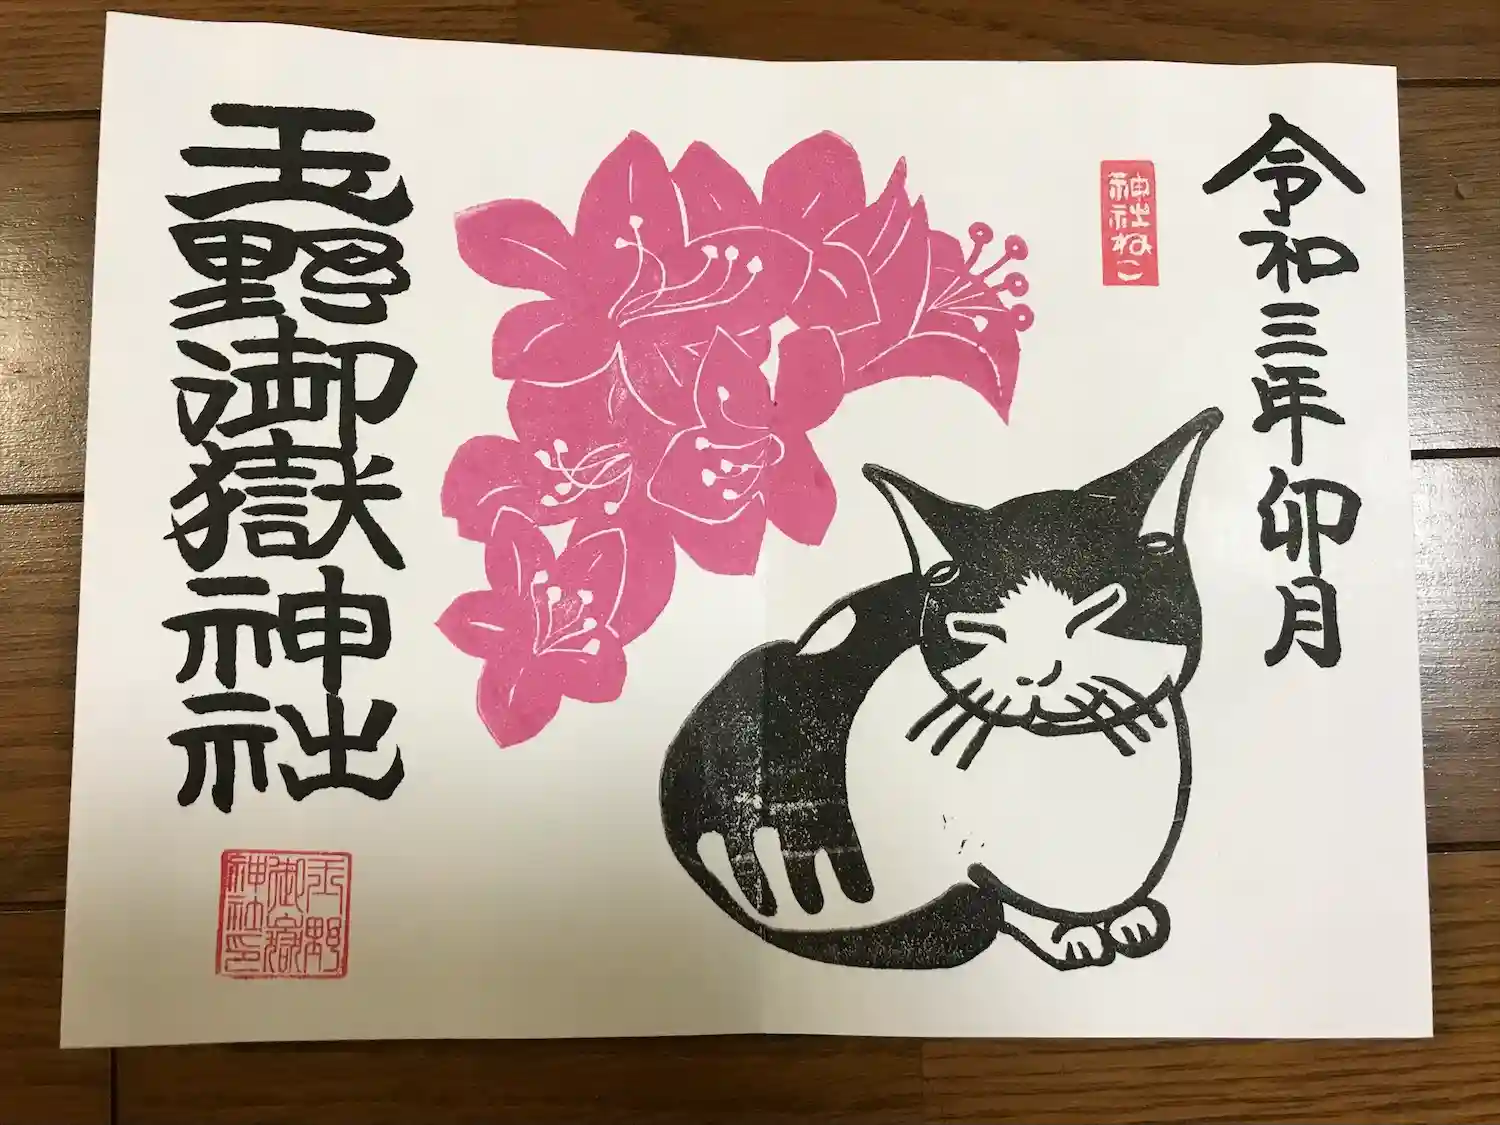 令和三年卯月
神社ねこ
玉野御嶽神社
玉野
御嶽
神社印